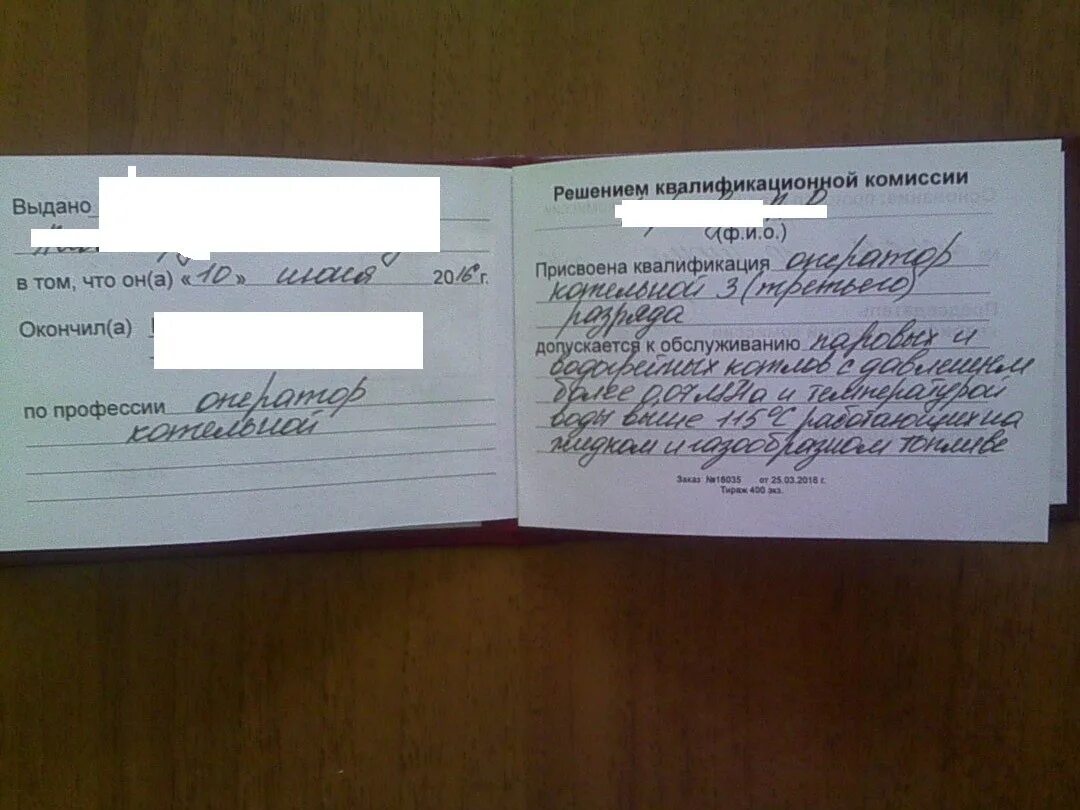 Выдано
в том, что он(а) «10» июня 2016 г.
Окончил(а)
по профессии оператор
котельной
Решением квалификационной комиссии
(ф.и.о.)
Присвоена квалификация оператор
котельной 3 (третьего)
разряда
допускается к обслуживанию паровых и
водогрейных котлов с давлением
более 0,07 МПа и температурой
воды выше 115°С работающих на
жидком и газообразном топливе
Заказ №16035 от 25.03.2016 г.
Тираж 400 экз.